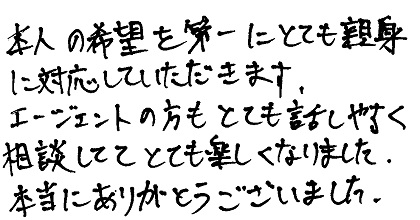 本人の希望を第一にとても親身
に対応していただきます。
エージェントの方もとても話しやすく
相談しててとても楽しくなりました.
本当にありがとうございました.